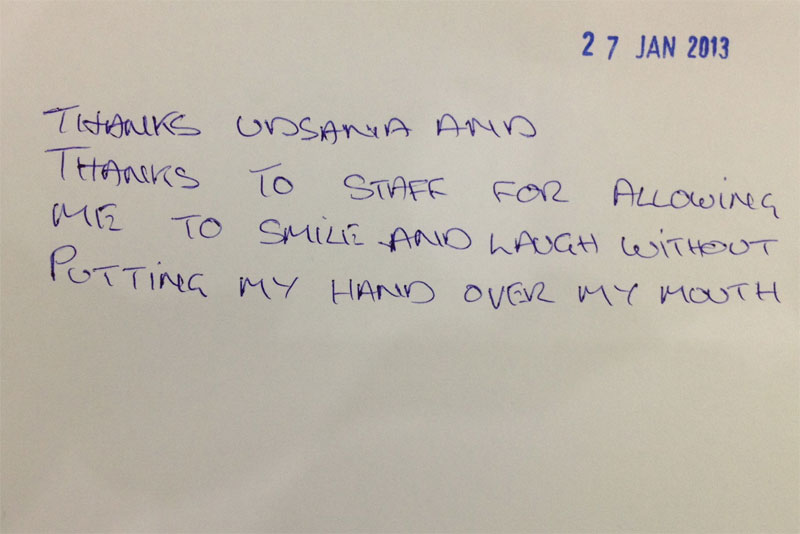 27 JAN 2013
THANKS UDSANIA AND
THANKS TO STAFF FOR ALLOWING
ME TO SMILE AND LAUGH WITHOUT
PUTTING MY HAND OVER MY MOUTH